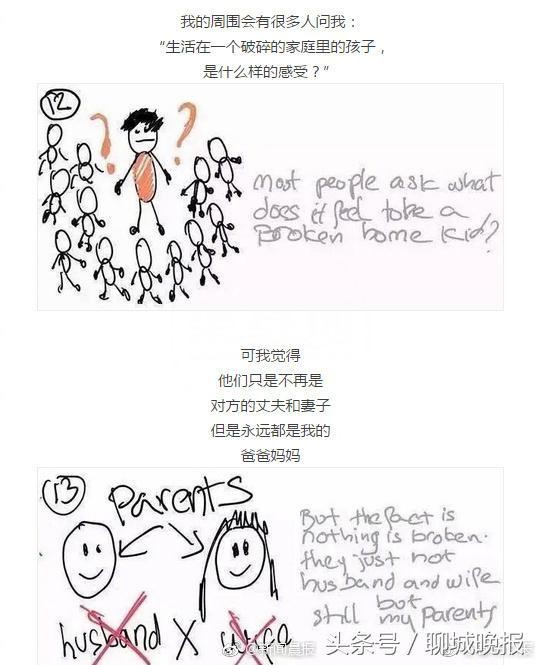 我的周围会有很多人问我：
“生活在一个破碎的家庭里的孩子，
是什么样的感受？”
12
? ?
most people ask what
does it feel to be a
Broken home kid?
可我觉得
他们只是不再是
对方的丈夫和妻子
但是永远都是我的
爸爸妈妈
13
parents
But the fact is
nothing is broken.
they just not
husband and wife
but
still my parents
husband X wife
头条号/聊城晚报